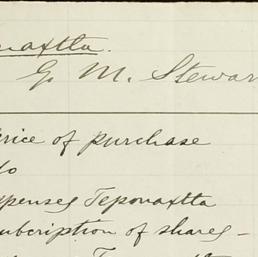 onaxtla.
G. M. Stewar
rice of purchase
do
xpenses Teponaxtla
ubcription of shares -